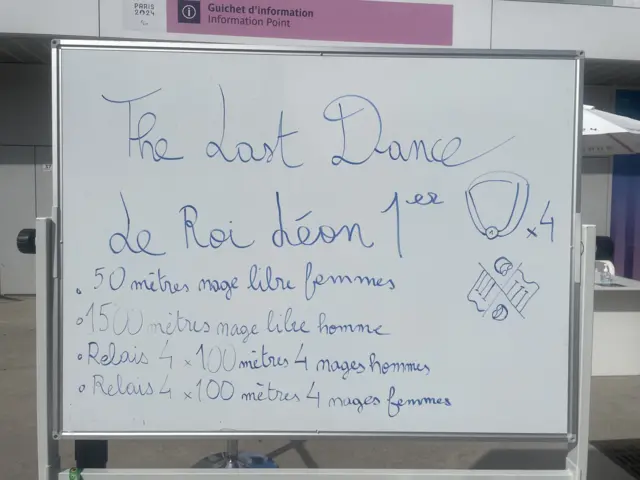 PARIS 2024
Guichet d'information
Information Point
The Last Dance
Le Roi Léon 1er
x4
• 50 mètres nage libre femmes
• 1500 mètres nage libre homme
• Relais 4 x 100 mètres 4 nages hommes
• Relais 4 x 100 mètres 4 nages femmes